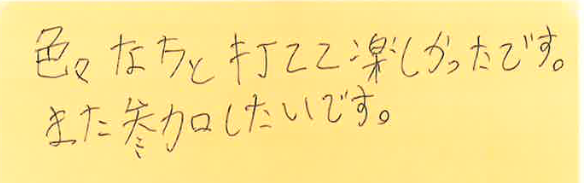 色々な方と打てて楽しかったです。
また参加したいです。